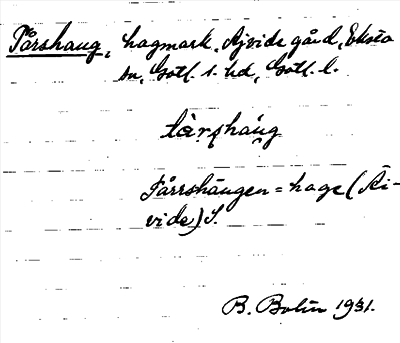 Tårshaug, hagmark, Ajvide gård, Eksta
sn, Gotl. s. hd, Gotl. l.
tàrshàug
Tårrshaugen = hage (Äi-
vide) S.
B. Bolin 1931.